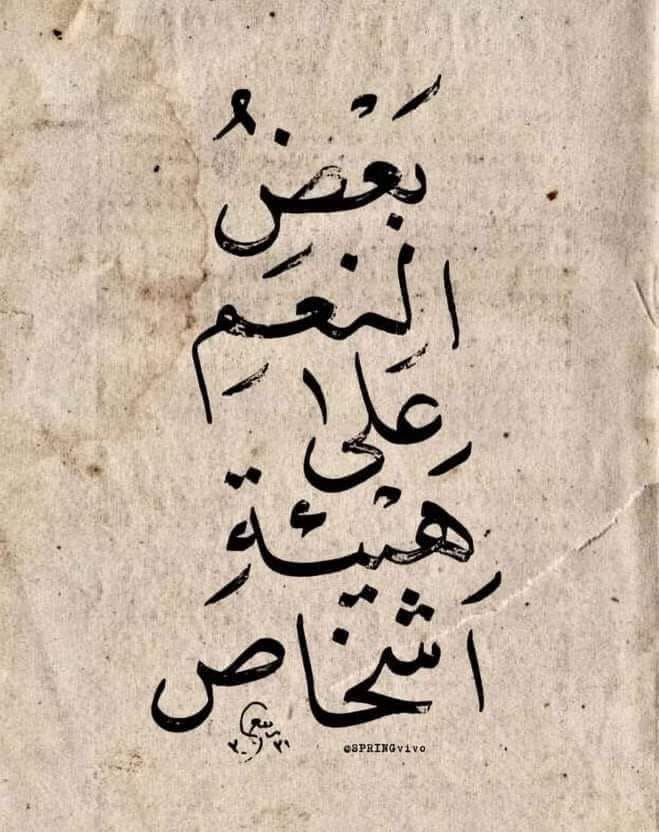 بَعْضُ
النعَمِ
عَلىٰ
هِيْئَةِ
اَشخاص
٢٠٢١
@SPRINGvivo